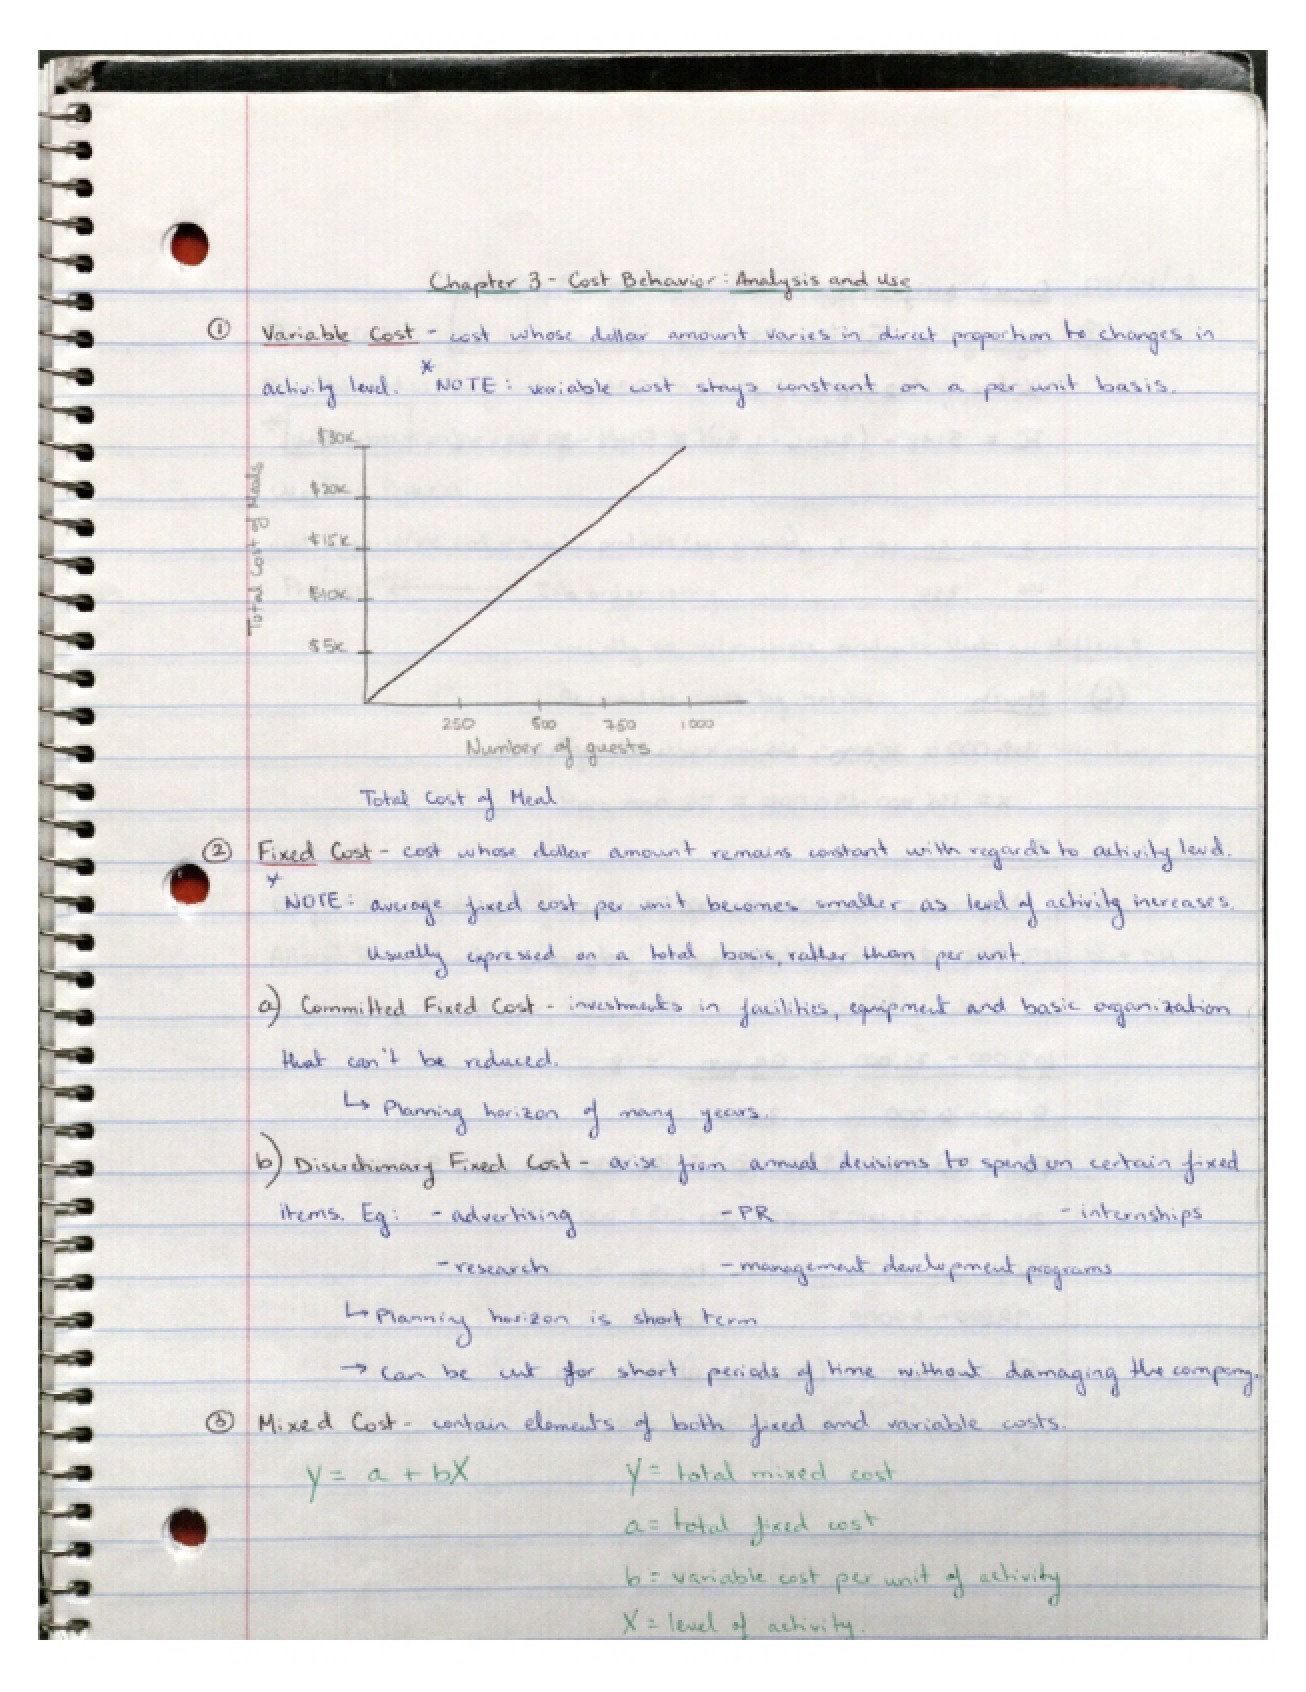 Chapter 3 - Cost Behavior: Analysis and Use
① Variable Cost - cost whose dollar amount varies in direct proportion to changes in
activity level. * NOTE: variable cost stays constant on a per unit basis.
Total Cost of Meals
$30K
$20K
$15K
$10K
$5K
250 500 750 1000
Number of guests
Total Cost of Meal
② Fixed Cost - cost whose dollar amount remains constant with regards to activity level.
* NOTE: average fixed cost per unit becomes smaller as level of activity increases.
Usually expressed on a total basis, rather than per unit.
a) Committed Fixed Cost - investments in facilities, equipment and basic organization
that can't be reduced.
↳ Planning horizon of many years.
b) Discretionary Fixed Cost - arise from annual decisions to spend on certain fixed
items. Eg: - advertising - PR - internships
- research - management development programs
↳ Planning horizon is short term
→ Can be cut for short periods of time without damaging the company.
③ Mixed Cost - contain elements of both fixed and variable costs.
Y = a + bX Y = total mixed cost
a = total fixed cost
b = variable cost per unit of activity
X = level of activity.